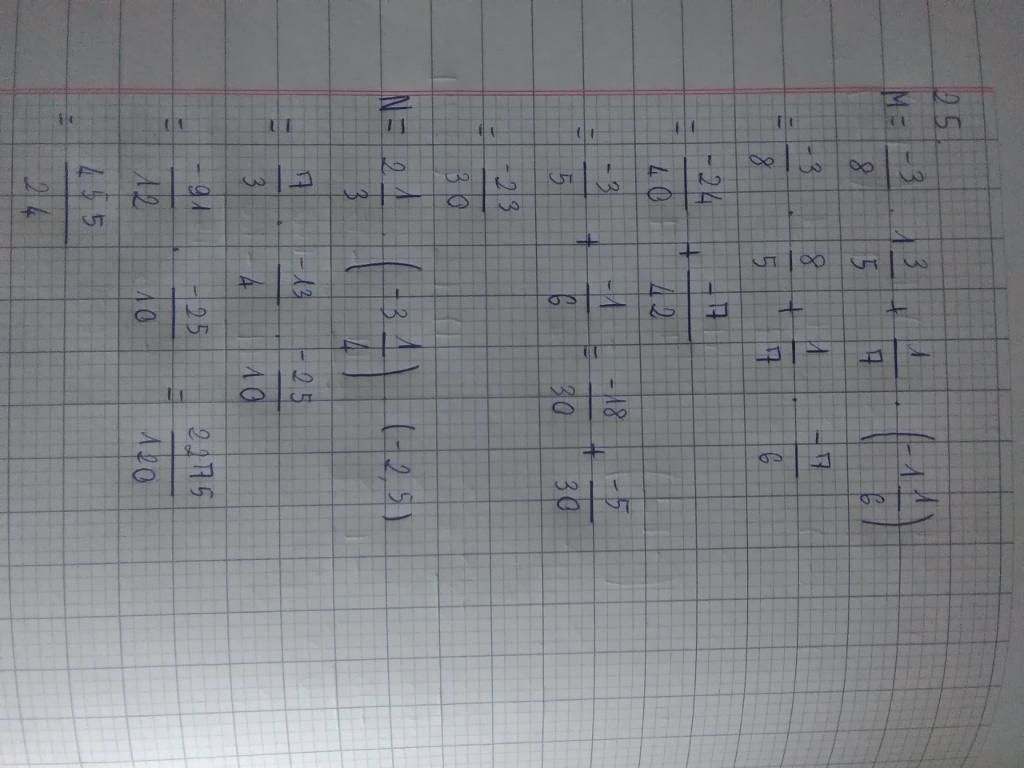 25.
M = -3/8 · 1 3/5 + 1/7 · (-1 1/6)
= -3/8 · 8/5 + 1/7 · -7/6
= -24/40 + -7/42
= -3/5 + -1/6 = -18/30 + -5/30
= -23/30
N = 2 1/3 · (-3 1/4) (-2,5)
= 7/3 · -13/4 · -25/10
= -91/12 · -25/10 = 2275/120
= 455/24